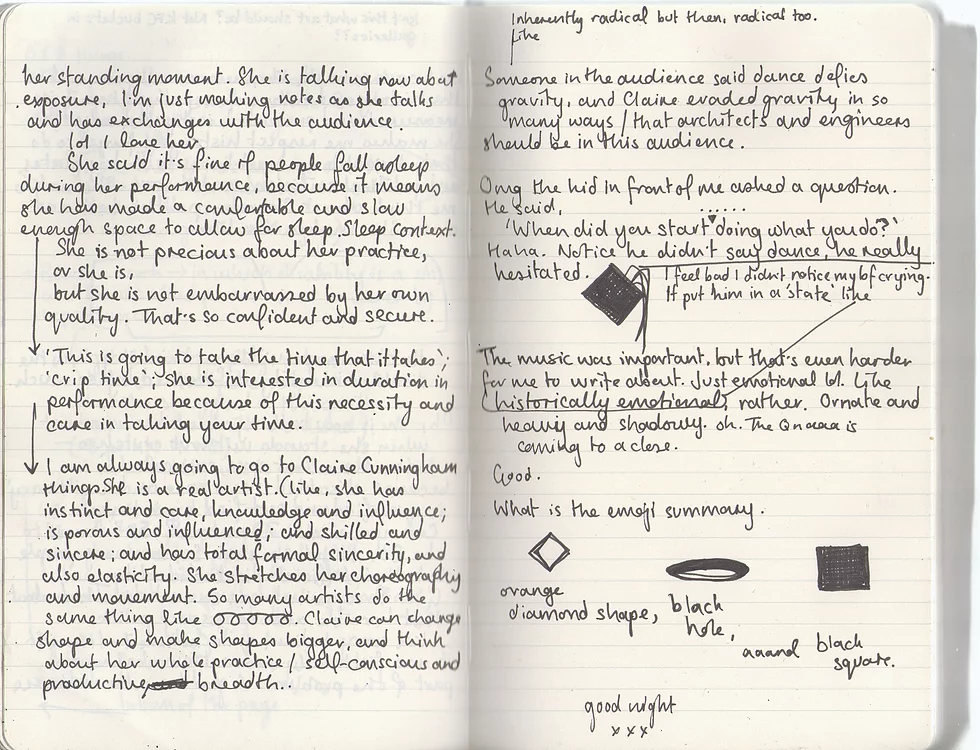 her standing moment. She is talking now about
exposure, I'm just making notes as she talks
and has exchanges with the audience.
lol I love her
She said it's fine if people fall asleep
during her performance, because it means
she has made a comfortable and slow
enough space to allow for sleep. Sleep context.
She is not precious about her practice,
or she is,
but she is not embarrassed by her own
quality. That's so confident and secure.
'This is going to take the time that it takes';
'crip time'; she is interested in duration in
performance because of this necessity and
care in taking your time.
I am always going to go to Claire Cunningham
things. She is a real artist. (like, she has
instinct and care, knowledge and influence;
is porous and influenced; and skilled and
sincere; and has total formal sincerity, and
also elasticity. She stretches her choreography
and movement. So many artists do the
same thing like ooooo. Claire can change
shape and make shapes bigger, and think
about her whole practice / self-conscious and
productive, and breadth..
Inherently radical but then, radical too.
Like
Someone in the audience said dance defies
gravity, and Claire evaded gravity in so
many ways / that architects and engineers
should be in this audience.
Omg the kid in front of me asked a question.
He said, ......
'When did you start doing what you do?'
Haha. Notice he didn't say dance, he really
hesitated.
I feel bad I didn't notice my bf crying.
It put him in a 'state' like
The music was important, but that's even harder
for me to write about. Just emotional lol. Like
historically emotional, rather. Ornate and
heavy and shadowy. oh. The Qnaaaa is
coming to a close.
Good.
What is the emoji summary.
orange
diamond shape,
black
hole,
aaand black
square.
good night
xxx